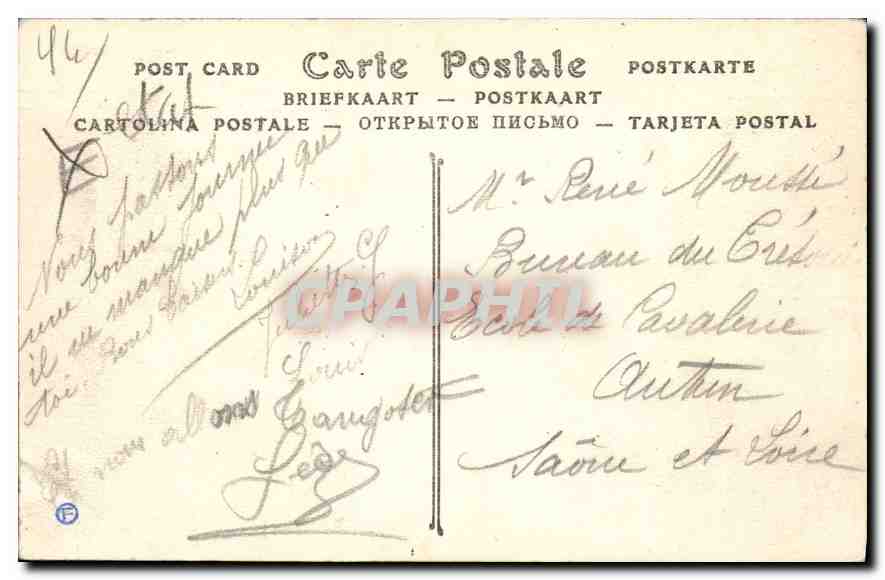 44
POST CARD Carte Postale POSTKARTE
BRIEFKAART — POSTKAART
CARTOLINA POSTALE — ОТКРЫТОЕ ПИСЬМО — TARJETA POSTAL
Etat
Nous passons
une bonne journée
il ne manque plus que
toi. Bons baisers. Louison
Juliette
Louis
Et nous allons Tangoter
Mr René Moussé
Bureau du Trésorier
Ecole de Cavalerie
Autun
Saône et Loire
CPAPHIL
F